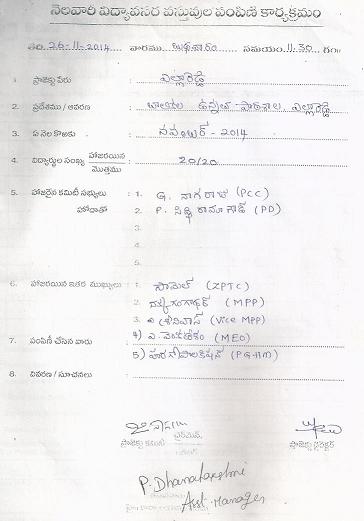 నెలవారీ విద్యావసర వస్తువుల పంపిణి కార్యక్రమం
తేది. 26-11-2014 వారము బుధవారం సమయం. 11.30 గం॥
1. ప్రాజెక్టు పేరు : ఎల్లారెడ్డి
2. ప్రదేశము / ఆవరణ : బాలుర ఉన్నత పాఠశాల, ఎల్లారెడ్డి
3. ఏ నెల కొఱకు : నవంబర్ - 2014
4. విద్యార్థుల సంఖ్య హాజరయిన / మొత్తము : 20/20
5. హాజరైన కమిటీ సభ్యులు : 1. G. నాగరాజు (PCC)
హోదాతో 2. P. సిద్ధిరాములు గౌడ్ (PD)
3.
4.
5.
6. హాజరయిన ఇతర ముఖ్యులు : 1. సామెల్ (ZPTC)
2. గంగాధర్ (MPP)
3. శ్రీనివాస్ (Vice MPP)
7. పంపిణీ చేసిన వారు : 4) ఎ. వెంకటేశం (MEO)
5) హరగోపాల్ కిషన్ (PG-HM)
8. వివరణ / సూచనలు :
ప్రాజెక్టు కమిటీ ఛైర్మెన్
ప్రాజెక్టు డైరెక్టర్
P. Dhanalakshmi
Asst. Manager